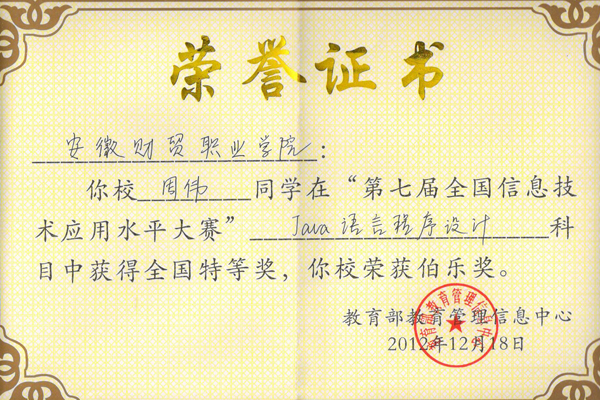 荣誉证书
安徽财贸职业学院：
你校 周伟 同学在“第七届全国信息技
术应用水平大赛” Java 语言程序设计 科
目中获得全国特等奖，你校荣获伯乐奖。
教育部教育管理信息中心
2012年12月18日